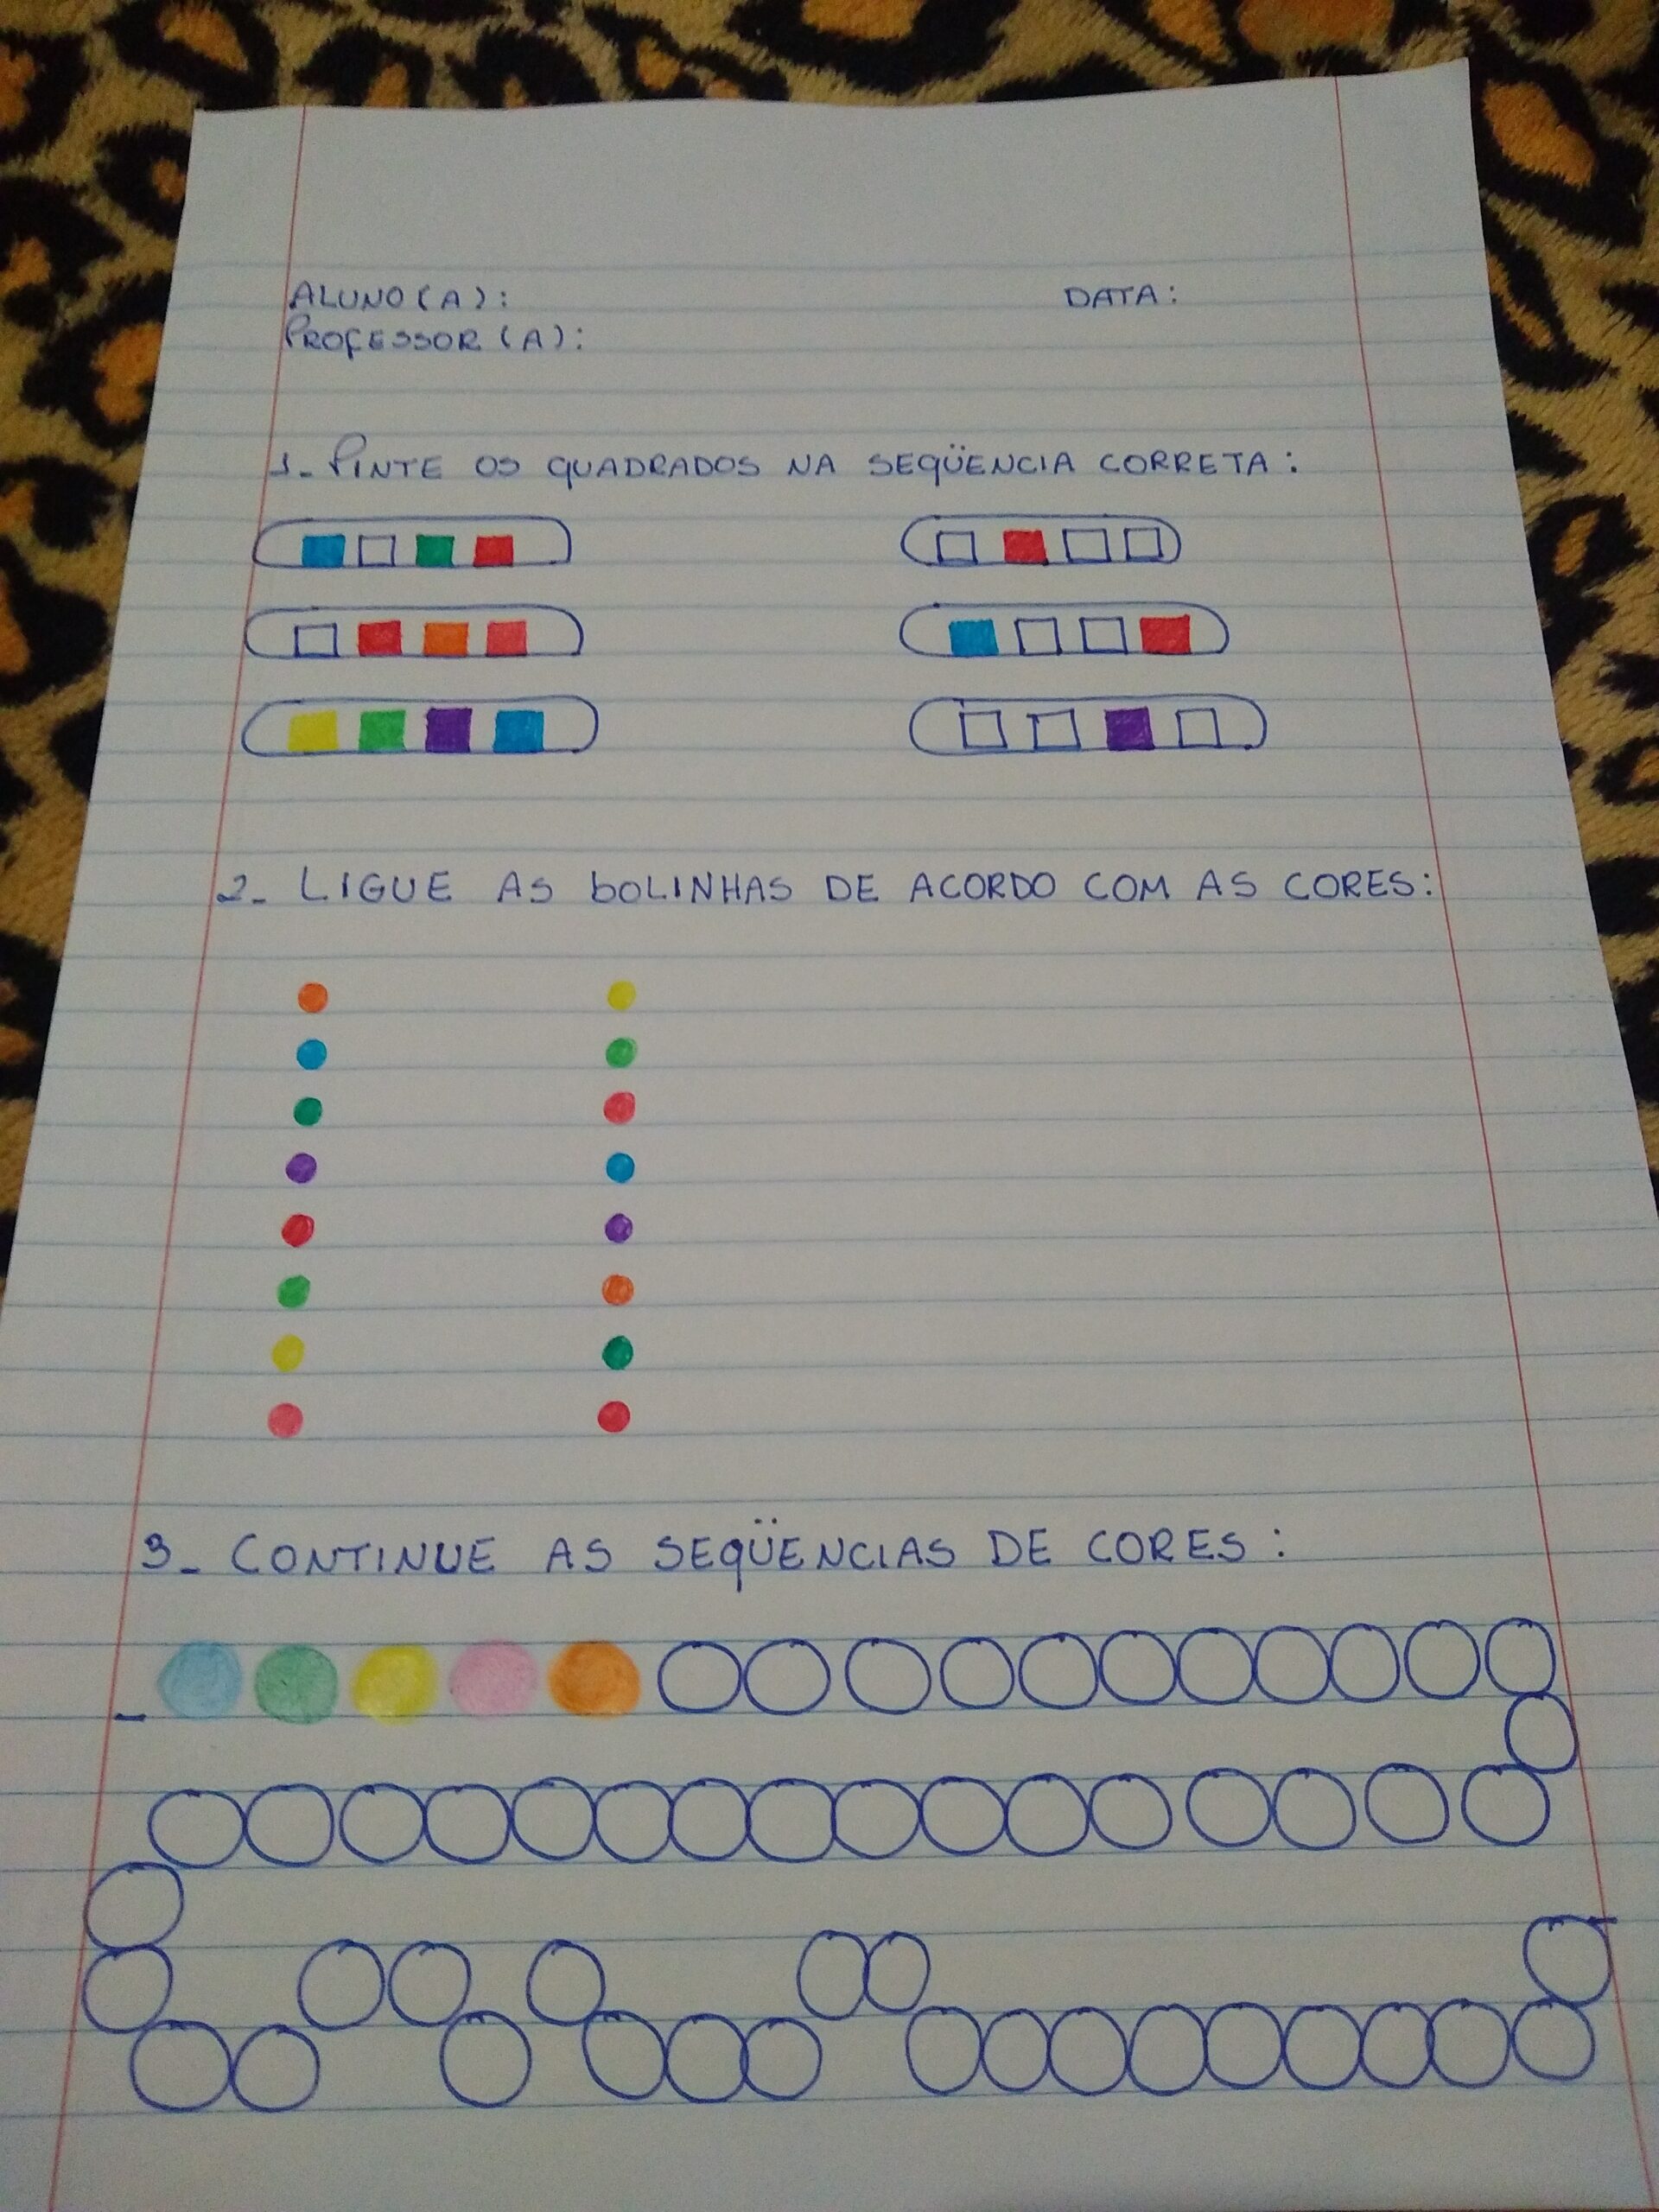 ALUNO(A): DATA:
PROFESSOR(A):
1- PINTE OS QUADRADOS NA SEQÜENCIA CORRETA:
2- LIGUE AS bOLINHAS DE ACORDO COM AS CORES:
3- CONTINUE AS SEQÜENCIAS DE CORES: